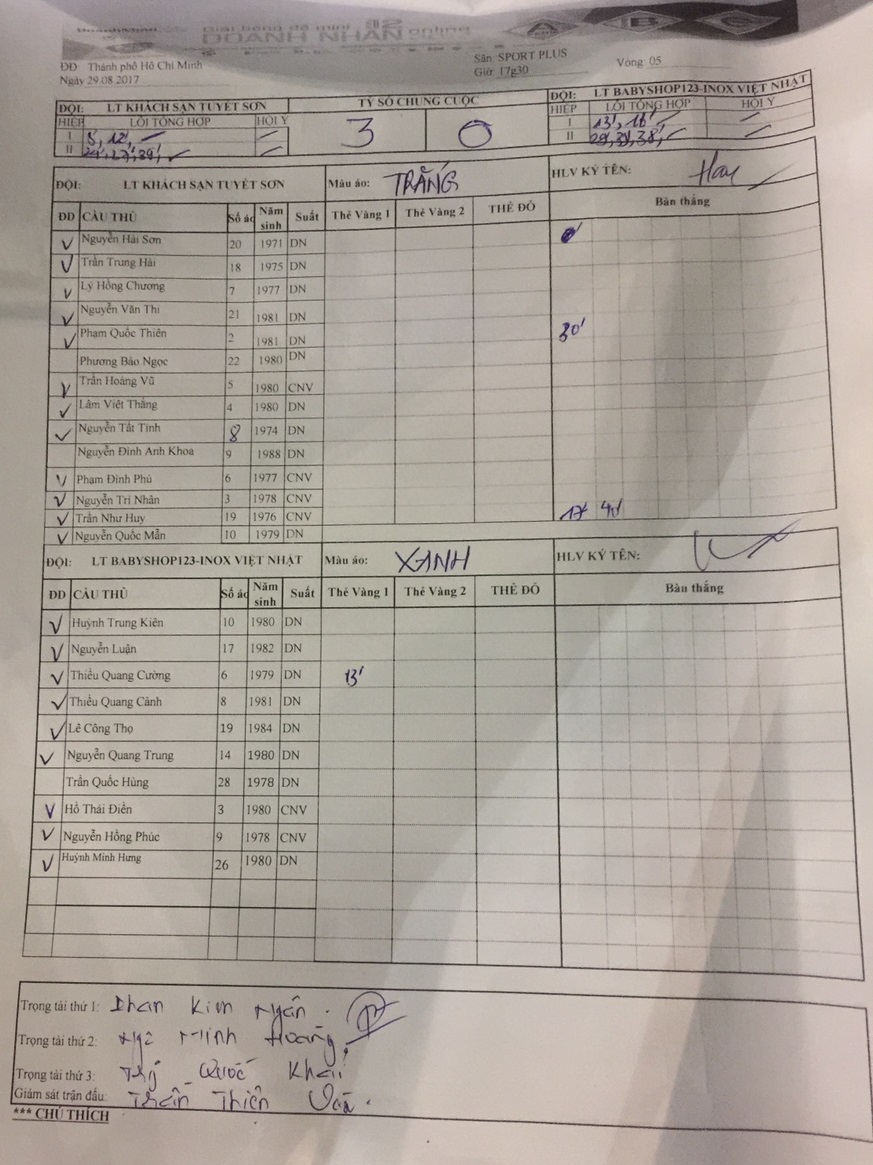 Giải bóng đá mini
DOANH NHÂN online
A B C
ĐĐ Thành phố Hồ Chí Minh Sân: SPORT PLUS Vòng: 05
Ngày 29.08.2017 Giờ: 17g30
ĐỘI: LT KHÁCH SẠN TUYẾT SƠN TỶ SỐ CHUNG CUỘC ĐỘI: LT BABYSHOP123-INOX VIỆT NHẬT
HIỆP LỖI TỔNG HỢP HỘI Ý 3 0 HIỆP LỖI TỔNG HỢP HỘI Ý
I 8', 12' I 13', 16'
II 24', 27', 39' II 38'
ĐỘI: LT KHÁCH SẠN TUYẾT SƠN Màu áo: TRẮNG HLV KÝ TÊN:
ĐD CẦU THỦ Số áo Năm sinh Suất Thẻ Vàng 1 Thẻ Vàng 2 THẺ ĐỎ Bàn thắng
Nguyễn Hải Sơn 20 1971 DN
Trần Trung Hải 18 1975 DN
Lý Hồng Chương 7 1977 DN
Nguyễn Văn Thi 21 1981 DN
Phạm Quốc Thiên 2 1981 DN 30'
Phương Bảo Ngọc 22 1980 DN
Trần Hoàng Vũ 5 1980 CNV
Lâm Việt Thắng 4 1980 DN
Nguyễn Tất Tình 8 1974 DN
Nguyễn Đình Anh Khoa 9 1988 DN
Phạm Đình Phú 6 1977 CNV
Nguyễn Trí Nhân 3 1978 CNV
Trần Như Huy 19 1976 CNV 17' 40'
Nguyễn Quốc Mẫn 10 1979 DN
ĐỘI: LT BABYSHOP123-INOX VIỆT NHẬT Màu áo: XANH HLV KÝ TÊN:
ĐD CẦU THỦ Số áo Năm sinh Suất Thẻ Vàng 1 Thẻ Vàng 2 THẺ ĐỎ Bàn thắng
Huỳnh Trung Kiên 10 1980 DN
Nguyễn Luận 17 1982 DN
Thiều Quang Cường 6 1979 DN 13'
Thiều Quang Cảnh 8 1981 DN
Lê Công Thọ 19 1984 DN
Nguyễn Quang Trung 14 1980 DN
Trần Quốc Hùng 28 1978 DN
Hồ Thái Điền 3 1980 CNV
Nguyễn Hồng Phúc 9 1978 CNV
Huỳnh Minh Hưng 26 1980 DN
Trọng tài thứ 1: Phan Kim Ngân
Trọng tài thứ 2: Ngô Minh Hoàng
Trọng tài thứ 3: Quốc Khải
Giám sát trận đấu: Trần Thiện
*** CHÚ THÍCH